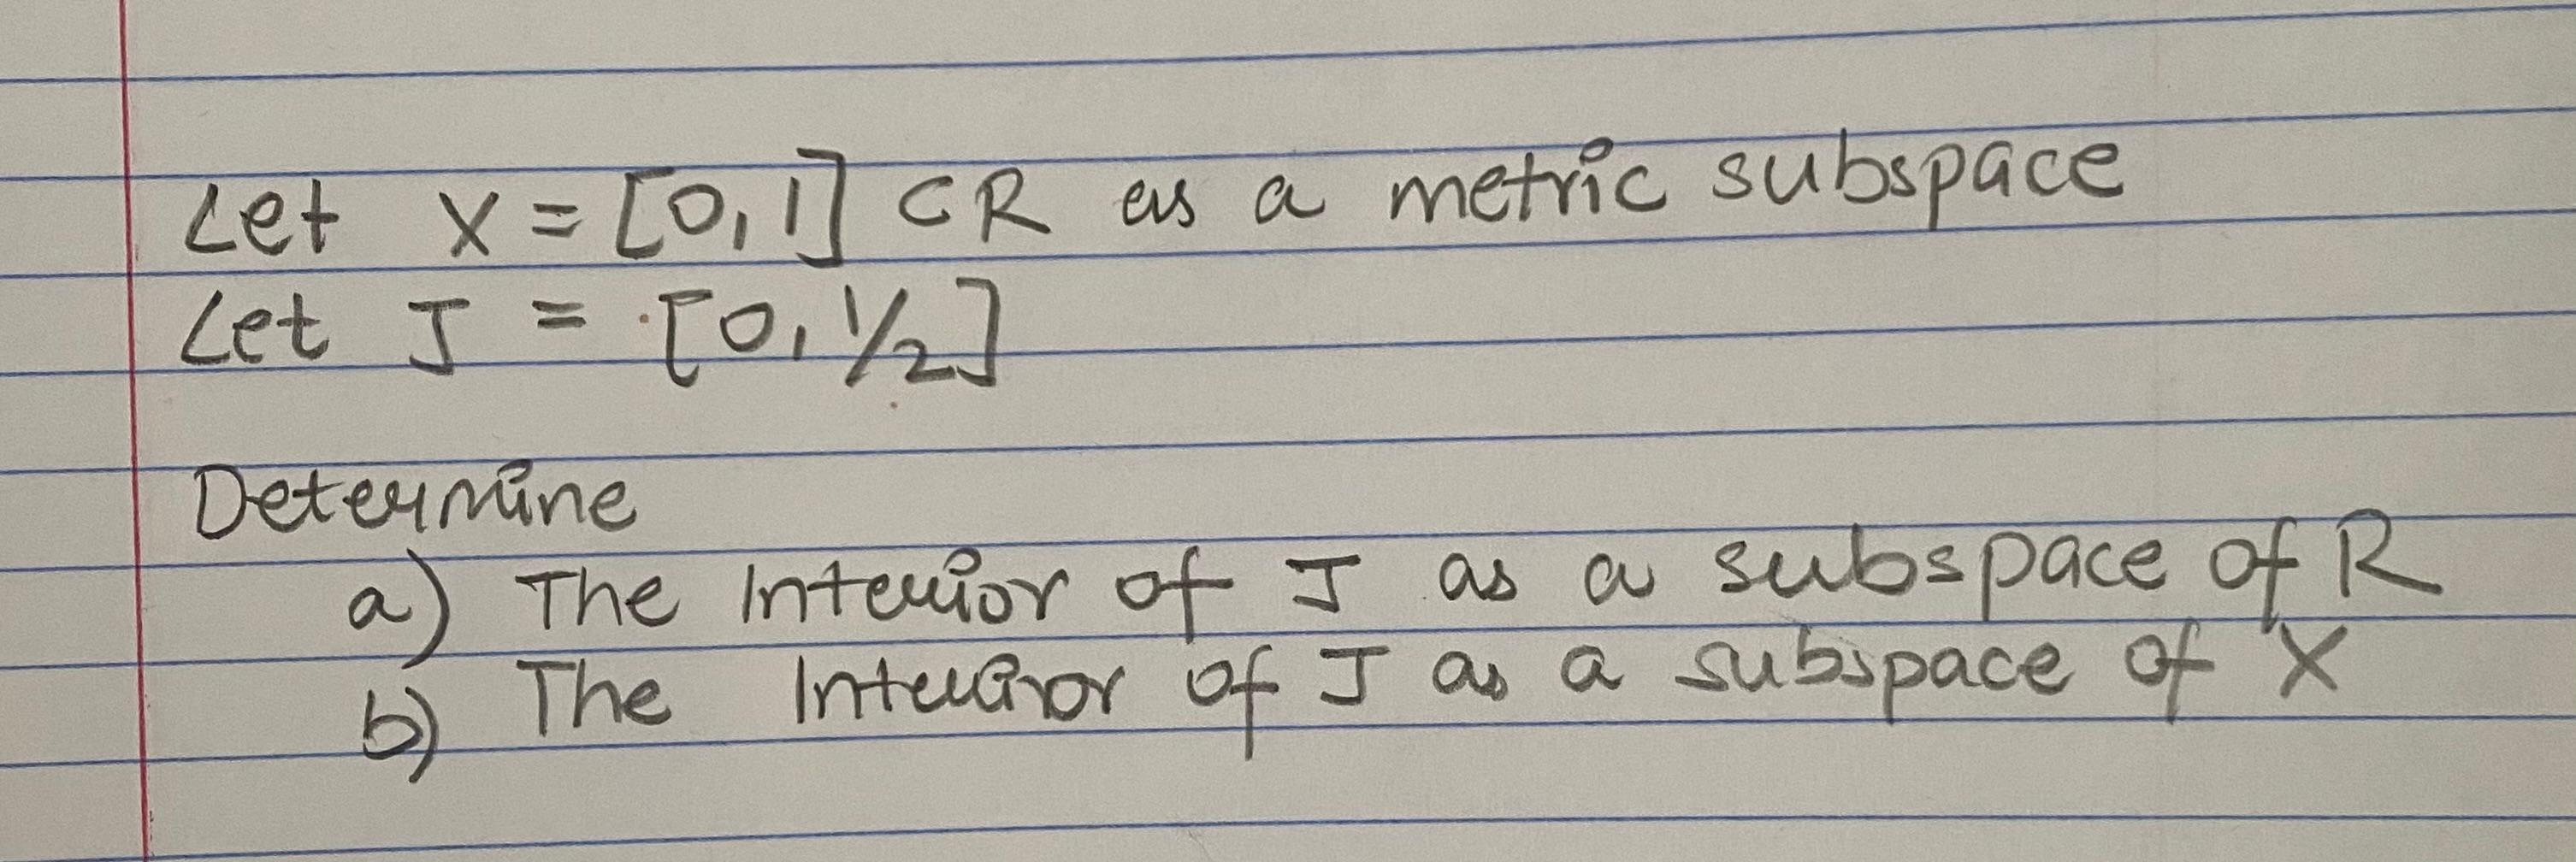 Let X = [0,1] ⊂ R as a metric subspace
Let J = [0, 1/2]
Determine
a) The Interior of J as a subspace of R
b) The Interior of J as a subspace of X